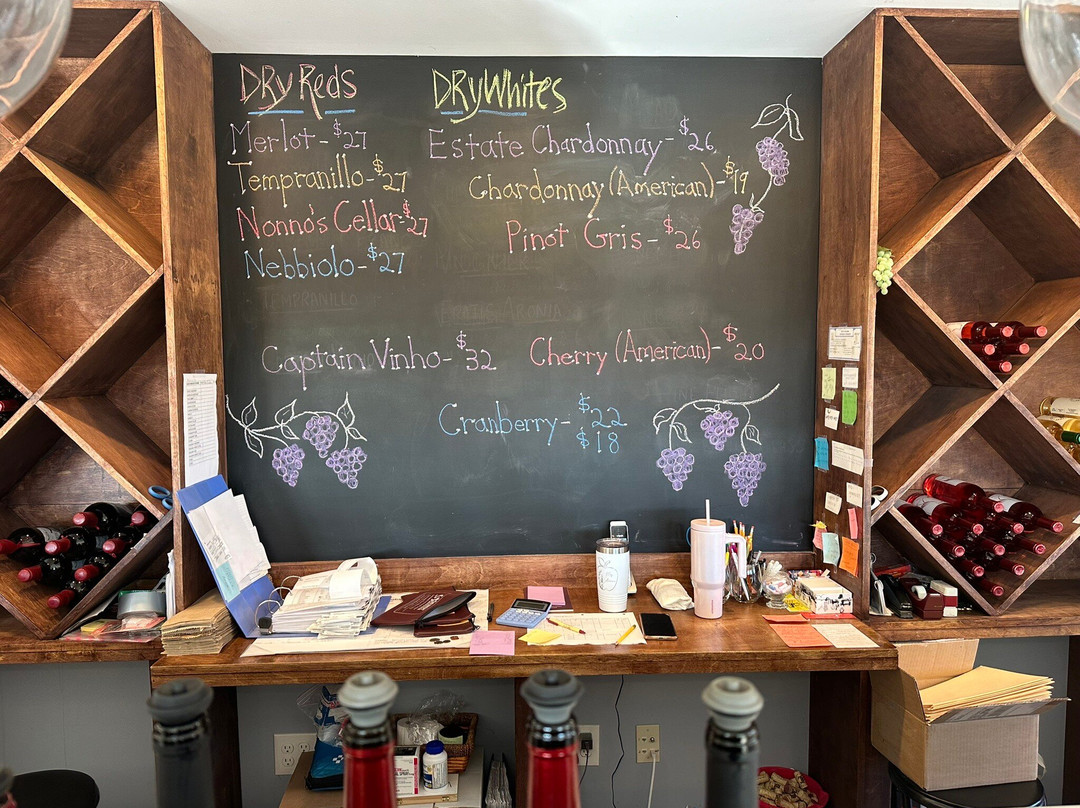 DRy Reds
Merlot - $27
Tempranillo - $27
Nonno's Cellar - $27
Nebbiolo - $27
DRy Whites
Estate Chardonnay - $26
Chardonnay (American) - $19
Pinot Gris - $26
TEMPRANILLO
Captain Vinho - $32
Cherry (American) - $20
Cranberry - $22
$18